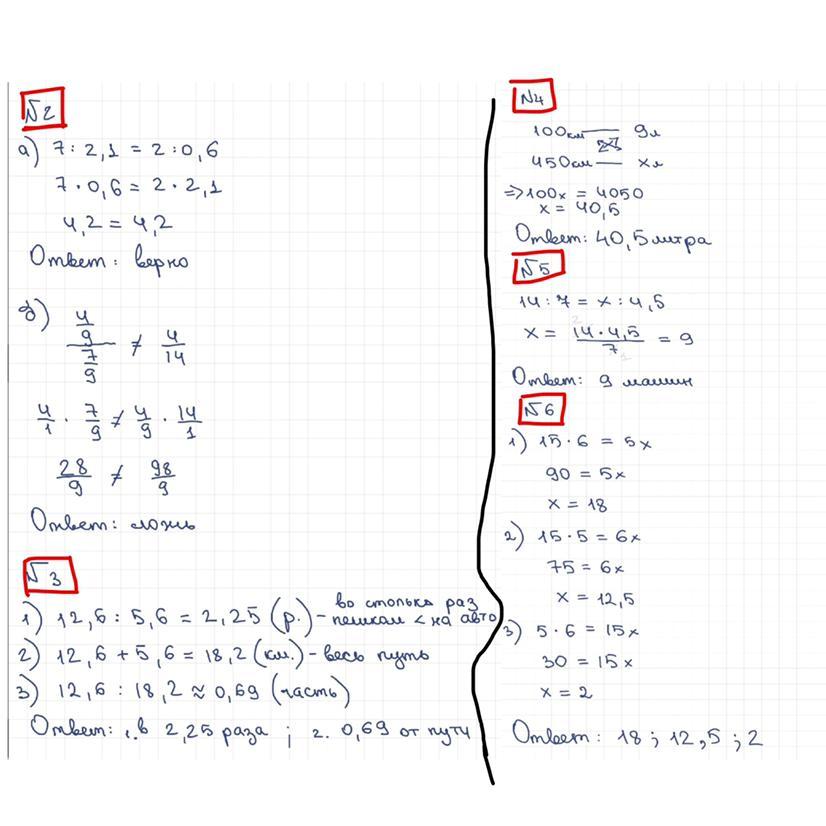 №2
а) 7 : 2,1 = 2 : 0,6
7 · 0,6 = 2 · 2,1
4,2 = 4,2
Ответ: верно
б) 4/9 / 7/9 ≠ 4/14
4/1 · 7/9 ≠ 4/9 · 14/1
28/9 ≠ 98/9
Ответ: ложь
№3
1) 12,6 : 5,6 = 2,25 (р.) - во столько раз
пешком < на авто
2) 12,6 + 5,6 = 18,2 (км.) - весь путь
3) 12,6 : 18,2 ≈ 0,69 (часть)
Ответ: 1. в 2,25 раза ; 2. 0,69 от пути
№4
100км — 9л
450км — xл
=> 100x = 4050
x = 40,5
Ответ: 40,5 литра
№5
14 : 7 = x : 4,5
x = 14 · 4,5 / 7 = 9
Ответ: 9 машин
№6
1) 15 · 6 = 5x
90 = 5x
x = 18
2) 15 · 5 = 6x
75 = 6x
x = 12,5
3) 5 · 6 = 15x
30 = 15x
x = 2
Ответ: 18 ; 12,5 ; 2